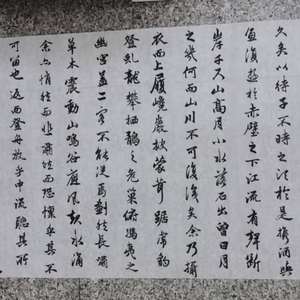 久矣以待子不時之需於是攜酒與
魚復遊於赤壁之下江流有聲斷
岸千尺山高月小水落石出曾日月
之幾何而山川不可復識矣余乃攝
衣而上履巉巖披蒙茸踞虎豹
登虬龍攀栖鶻之危巢俯馮夷之
幽宮蓋二客不能從焉劃然長嘯
草木震動山鳴谷應風起水涌
余亦悄然而悲肅然而恐凜乎其不
可留也返而登舟放乎中流聽其所